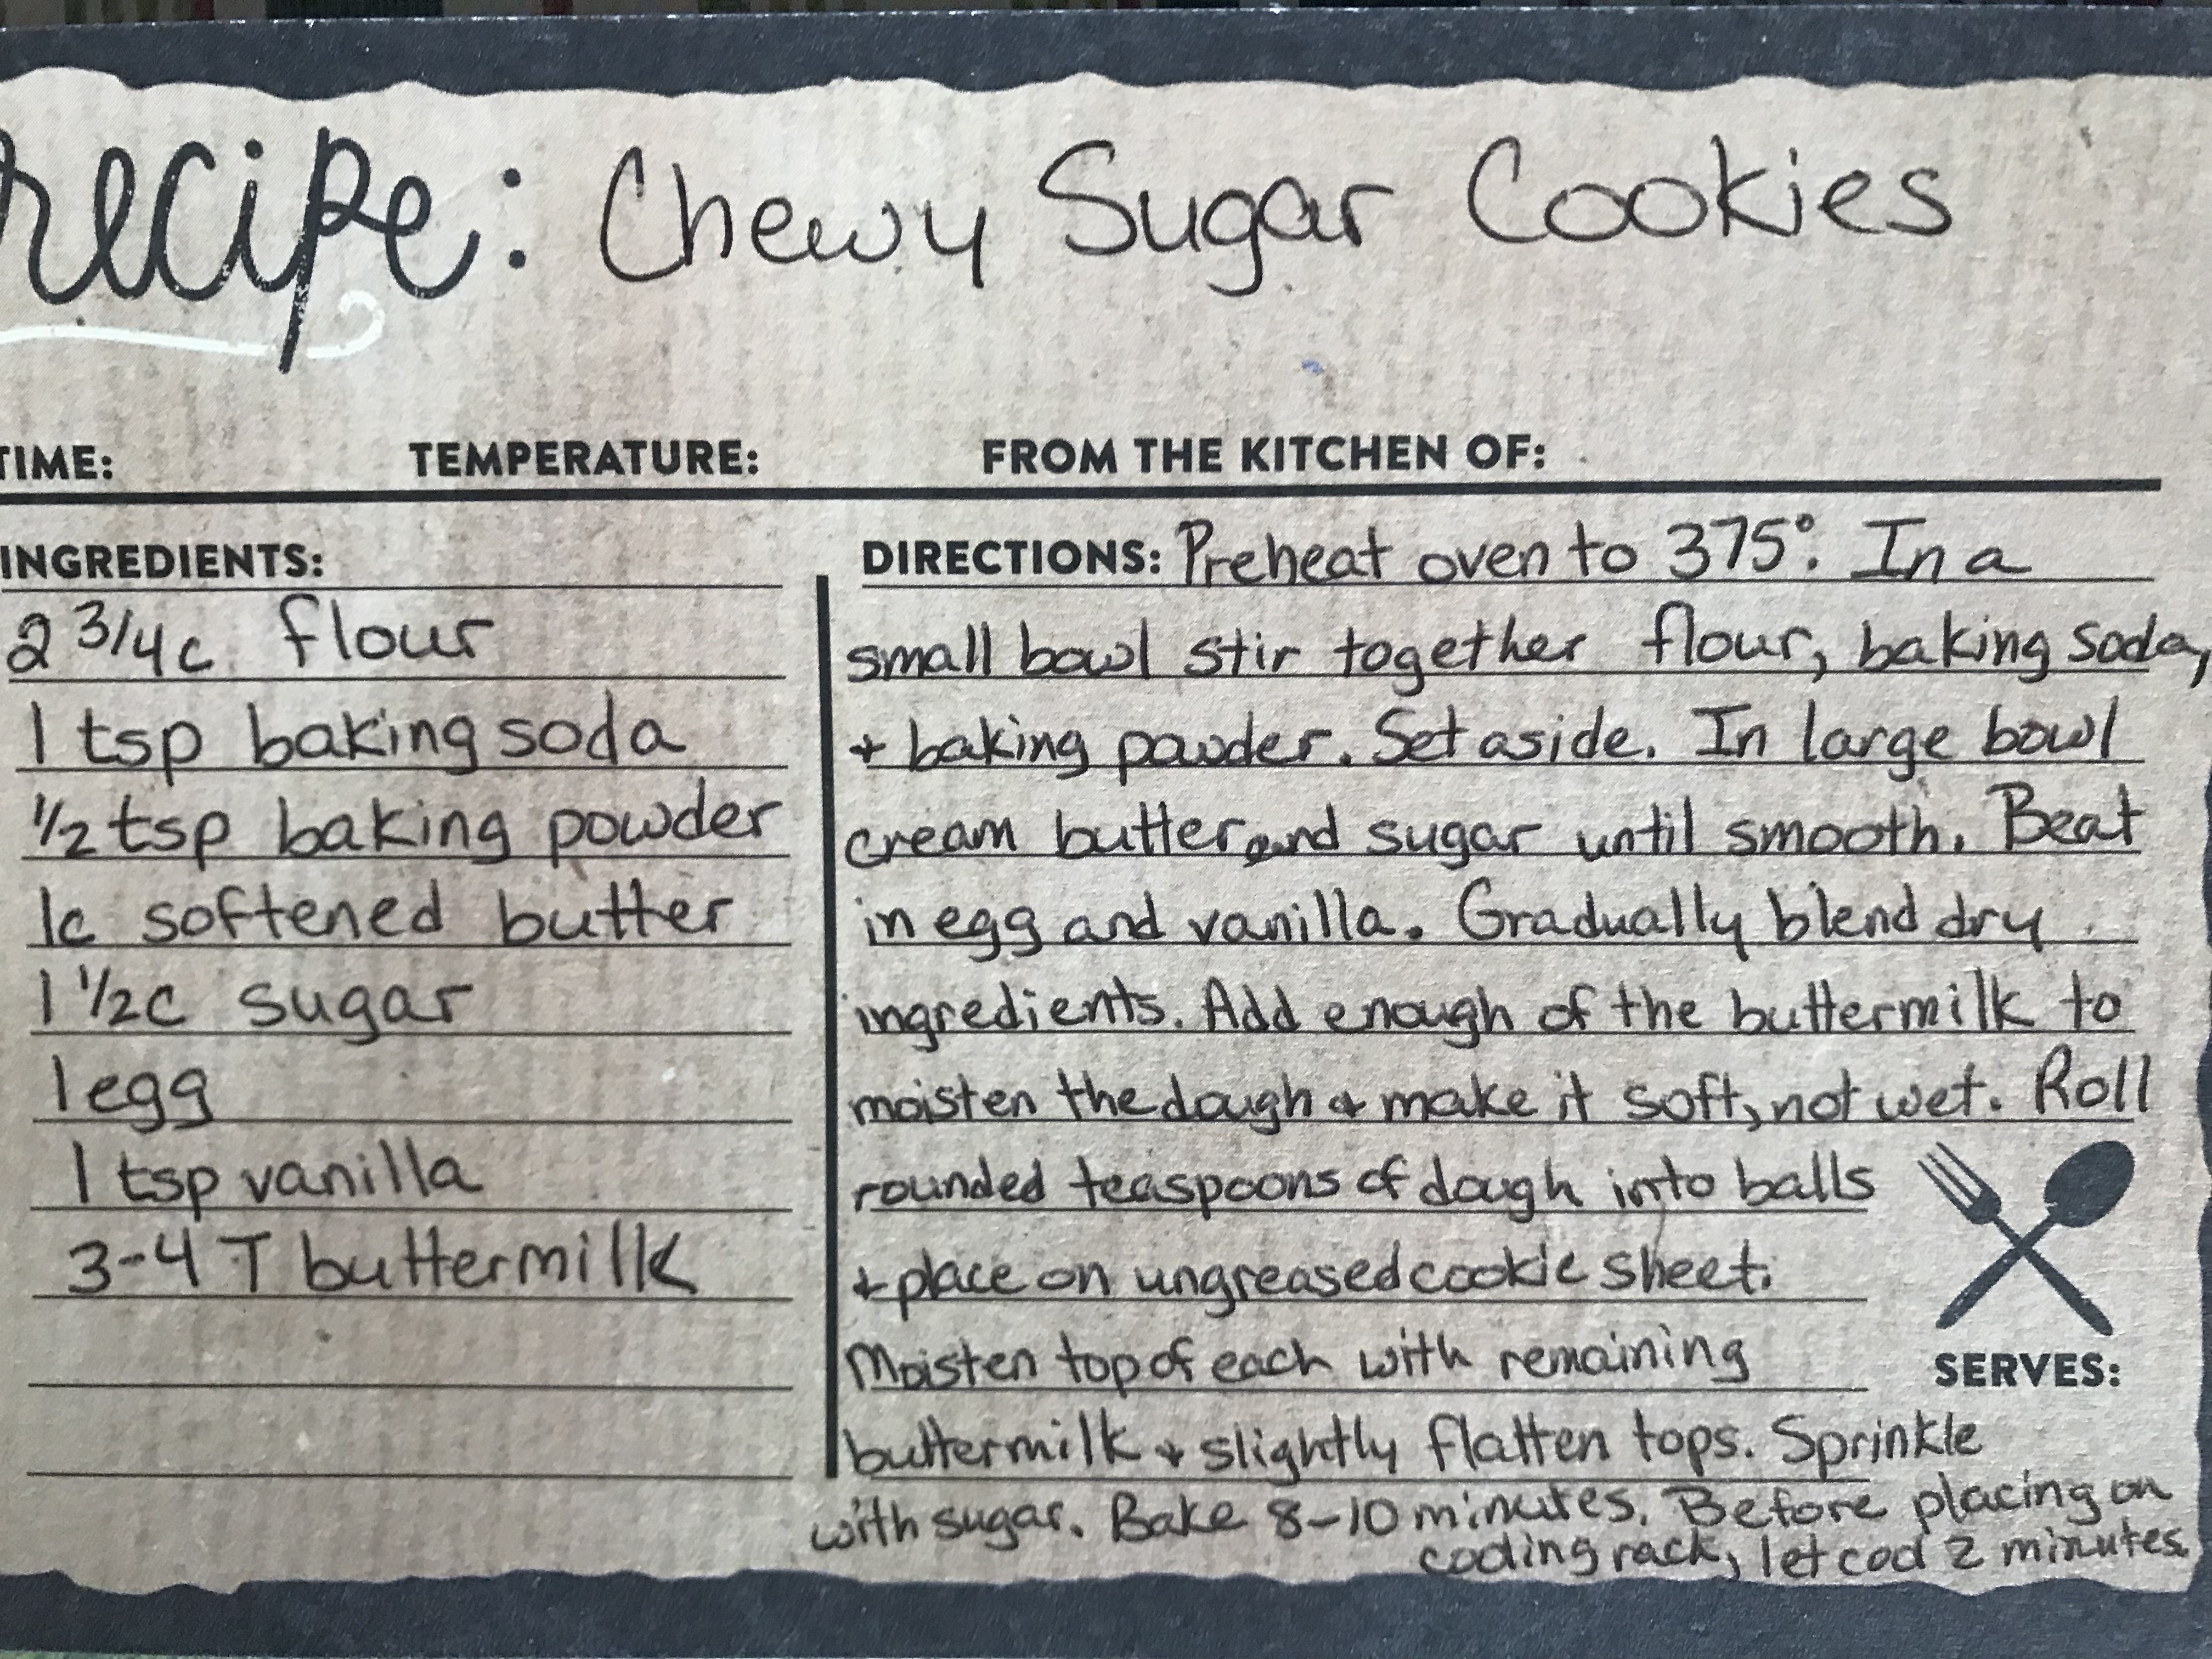 recipe: Chewy Sugar Cookies
TIME: TEMPERATURE: FROM THE KITCHEN OF:
INGREDIENTS:
2 3/4 c flour
1 tsp baking soda
1/2 tsp baking powder
1c softened butter
1 1/2c sugar
1 egg
1 tsp vanilla
3-4 T buttermilk
DIRECTIONS: Preheat oven to 375°. In a
small bowl stir together flour, baking soda,
+ baking powder. Set aside. In large bowl
cream butter and sugar until smooth. Beat
in egg and vanilla. Gradually blend dry
ingredients. Add enough of the buttermilk to
moisten the dough + make it soft, not wet. Roll
rounded teaspoons of dough into balls
+ place on ungreased cookie sheet.
Moisten top of each with remaining
buttermilk + slightly flatten tops. Sprinkle
with sugar. Bake 8-10 minutes. Before placing on
cooling rack, let cool 2 minutes.
SERVES: